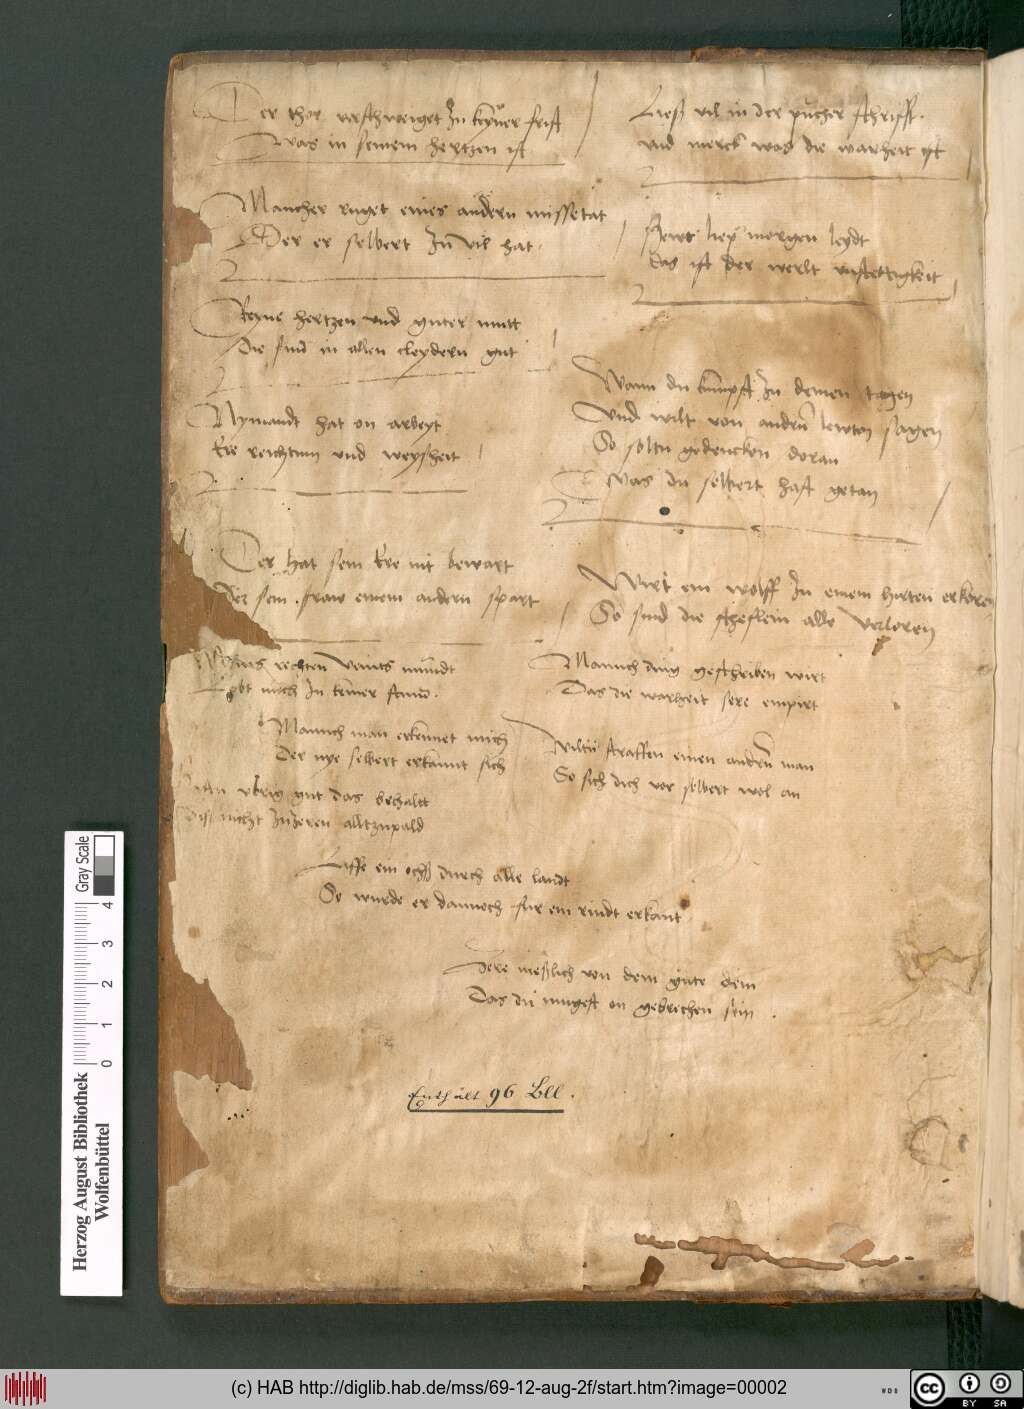 Der thor verschweiget In keyner frist
Was in seinem hertzen ist
Mancher ruget eines andern missetat
Der er selbert In vil hat
Reyne hertzen und guter mutt
Die sind in allen cleydern gut
Nymandt hat on arbeyt
Ere reichtum und weysheit
Der hat sein Ere nit bewart
Der sein fraw einem andern spart
rechten mundt
Lobt mich In keiner stund.
Manich man erkennet mich
Der nye selbert erkannt sich
ubrig gut das behaltt
nicht alltzupald
Ließ vil in der pucher schrifft.
und merck was die warheit ist
Hewt liep morgen leydt
das ist der werlt unstettigkeit
Wann du kumpst In deinen tagen
Und wilt von andern lewten sagen
So soltu gedencken doran
Was du selbert hast getan
Wirt ein wolff In einem hirten erkoren
So sind die scheflein alle verloren
Manich ding geschriben wirt
Das die warheit sere empirt
Wiltu straffen einen andern man
So sich dich vor selbert wol an
Lieffe ein ochß durch alle landt
So wurde er dannoch fur ein rindt erkant
von dem gute dein
Das du mugest on gebrechen sein
Enthält 96 Bll.
Gray Scale
0 1 2 3 4
Herzog August Bibliothek
Wolfenbüttel
(c) HAB http://diglib.hab.de/mss/69-12-aug-2f/start.htm?image=00002
WDB
cc
BY SA